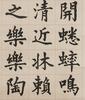 開蟋蟀鳴
清近牀賴
之樂樂陶